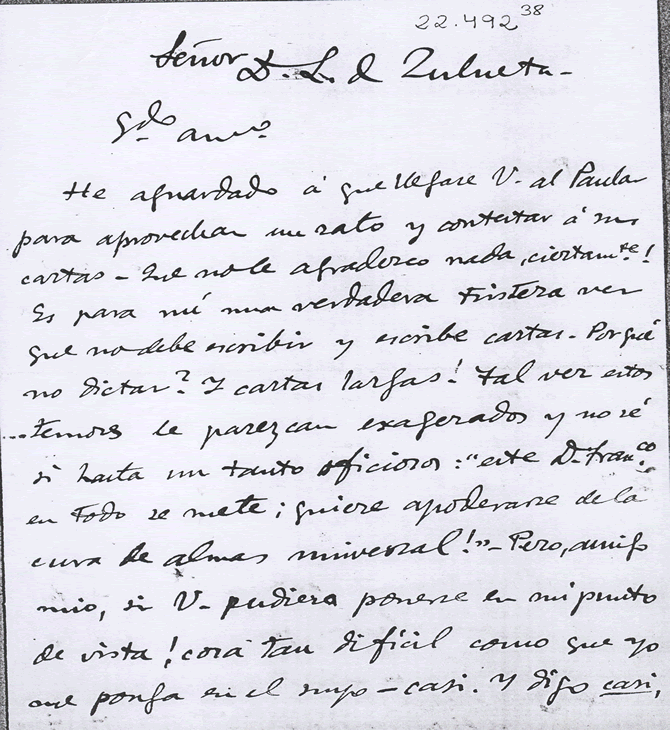 22.492 38
Señor D. L. d Zulueta-
Qdo amigo
He aguardado á que llegase V. al Paular
para aprovechar un rato y contestar á sus
cartas - Que no le agradezco nada, ciertamte!
Es para mí una verdadera tristeza ver
que no debe escribir y escribe cartas - Porqué
no dictar? Y cartas largas! Tal vez estos
temores le parezcan exagerados y no sé
si hasta un tanto oficiosos: "este D. Franco
en todo se mete; quiere apoderarse de la
cura de almas universal!" - Pero, amigo
mio, si V. pudiera ponerse en mi punto
de vista! cosa tan difícil como que yo
me ponga en el suyo - casi. Y digo casi,